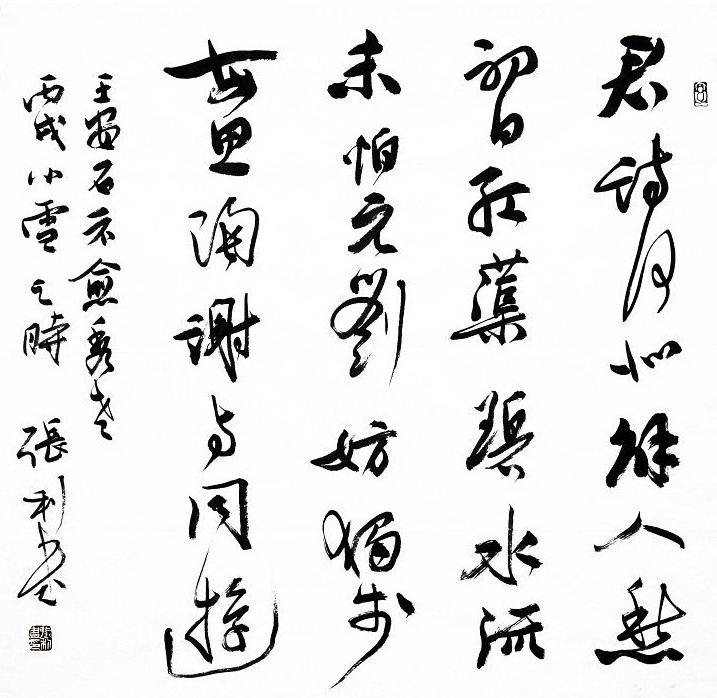 君詩何以解人愁
初日紅蕖碧水流
未怕元劉妨獨步
每思陶謝与同遊
王安石示愈秀老
丙戌小雪之時 張利